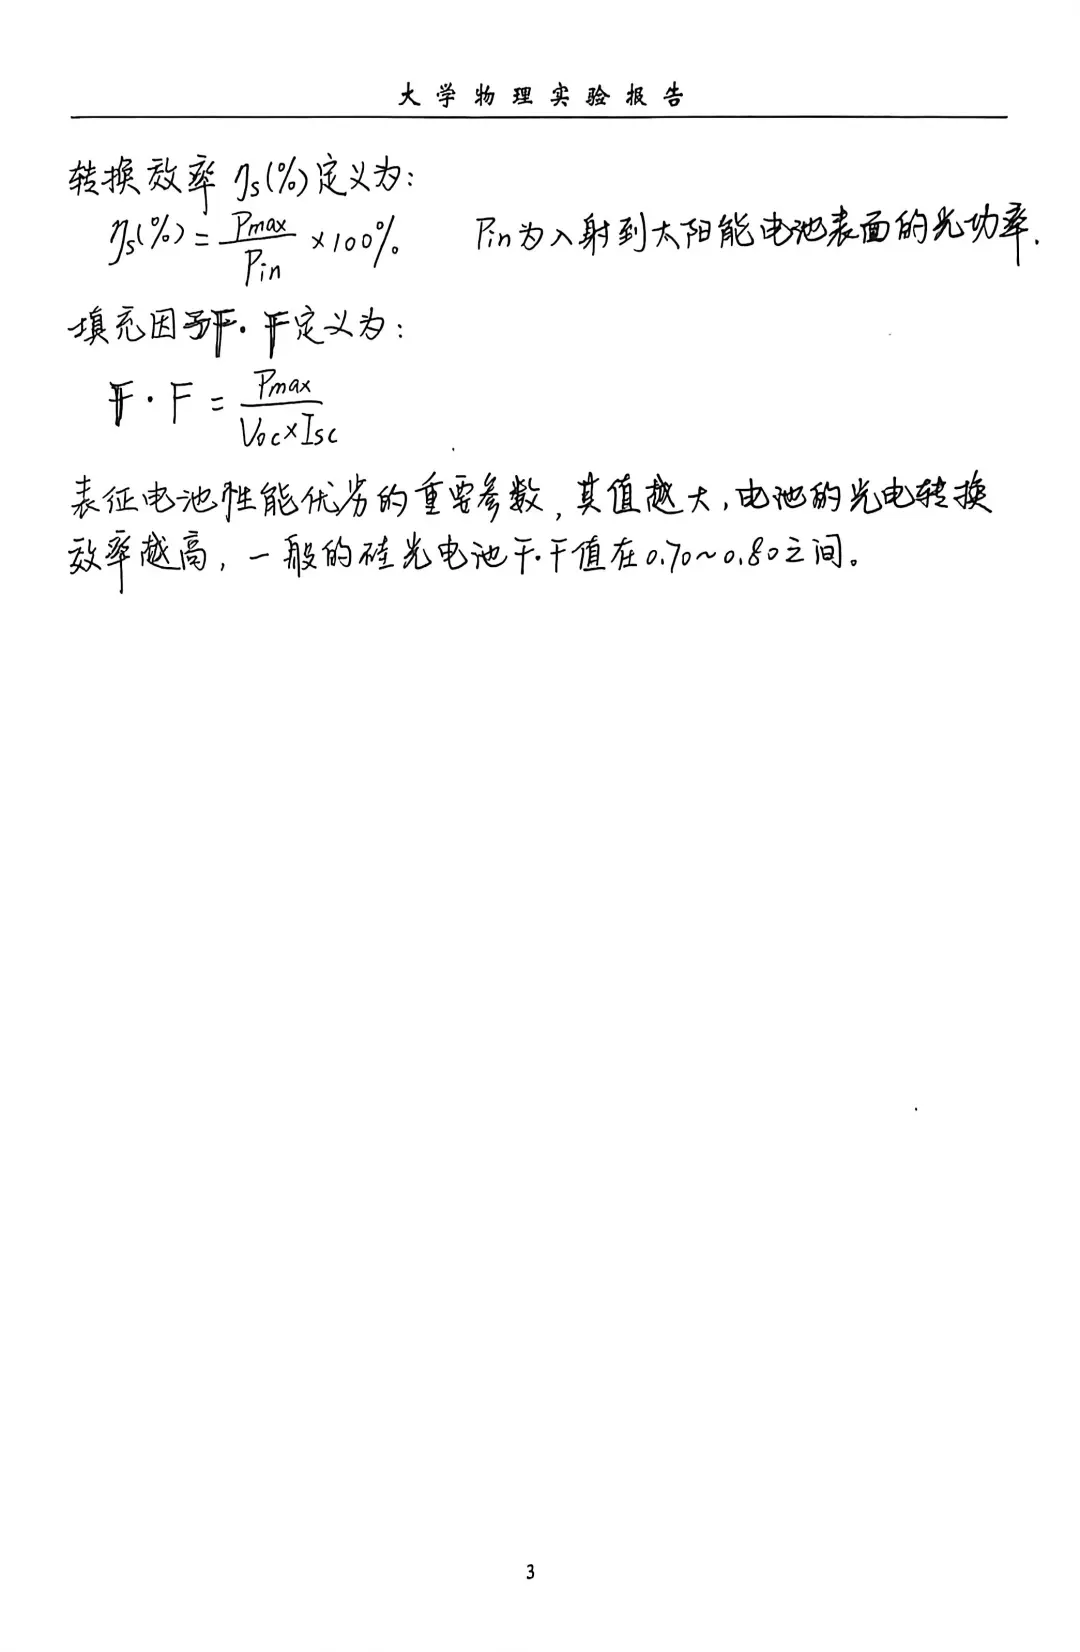 大学物理实验报告
转换效率 ηs(%)定义为:
ηs(%) = Pmax/Pin ×100% Pin为入射到太阳能电池表面的光功率.
填充因子F·F定义为:
F·F = Pmax/Voc×Isc
表征电池性能优劣的重要参数,其值越大,电池的光电转换
效率越高,一般的硅光电池F·F值在0.70~0.80之间。
3